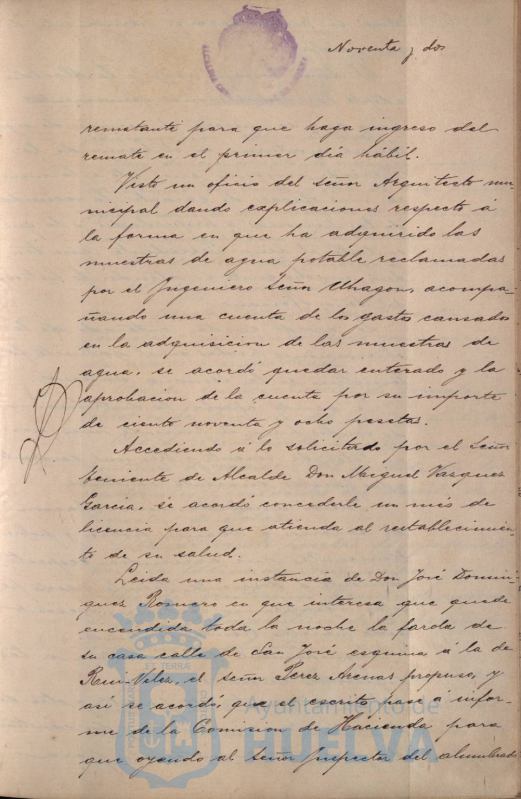 Noventa y dos
rematante para que haga ingreso del
remate en el primer día hábil.
Visto un oficio del señor Arquitecto mu-
nicipal dando explicaciones respecto á
la forma en que ha adquirido las
muestras de agua potable reclamadas
por el Ingeniero Señor Uhagon, acompa-
ñando una cuenta de los gastos causados
en la adquisicion de las muestras de
agua, se acordó quedar enterado y la
aprobacion de la cuenta por su importe
de ciento noventa y ocho pesetas.
Accediendo á lo solicitado por el Señor
teniente de Alcalde Don Miguel Vazquez
Garcia, se acordó concederle un més de
licencia para que atienda al restablecimien-
to de su salud.
Leida una instancia de Don José Domin-
guez Romero en que interesa que quede
encendida toda la noche la farola de
su casa calle de San José esquina á la de
Rui-Velez, el señor Perez Arenas propuso, y
así se acordó, que el escrito pase á infor-
me de la Comision de Hacienda para
que oyendo al señor Inspector del alumbrado
Ayuntamiento de
HUELVA